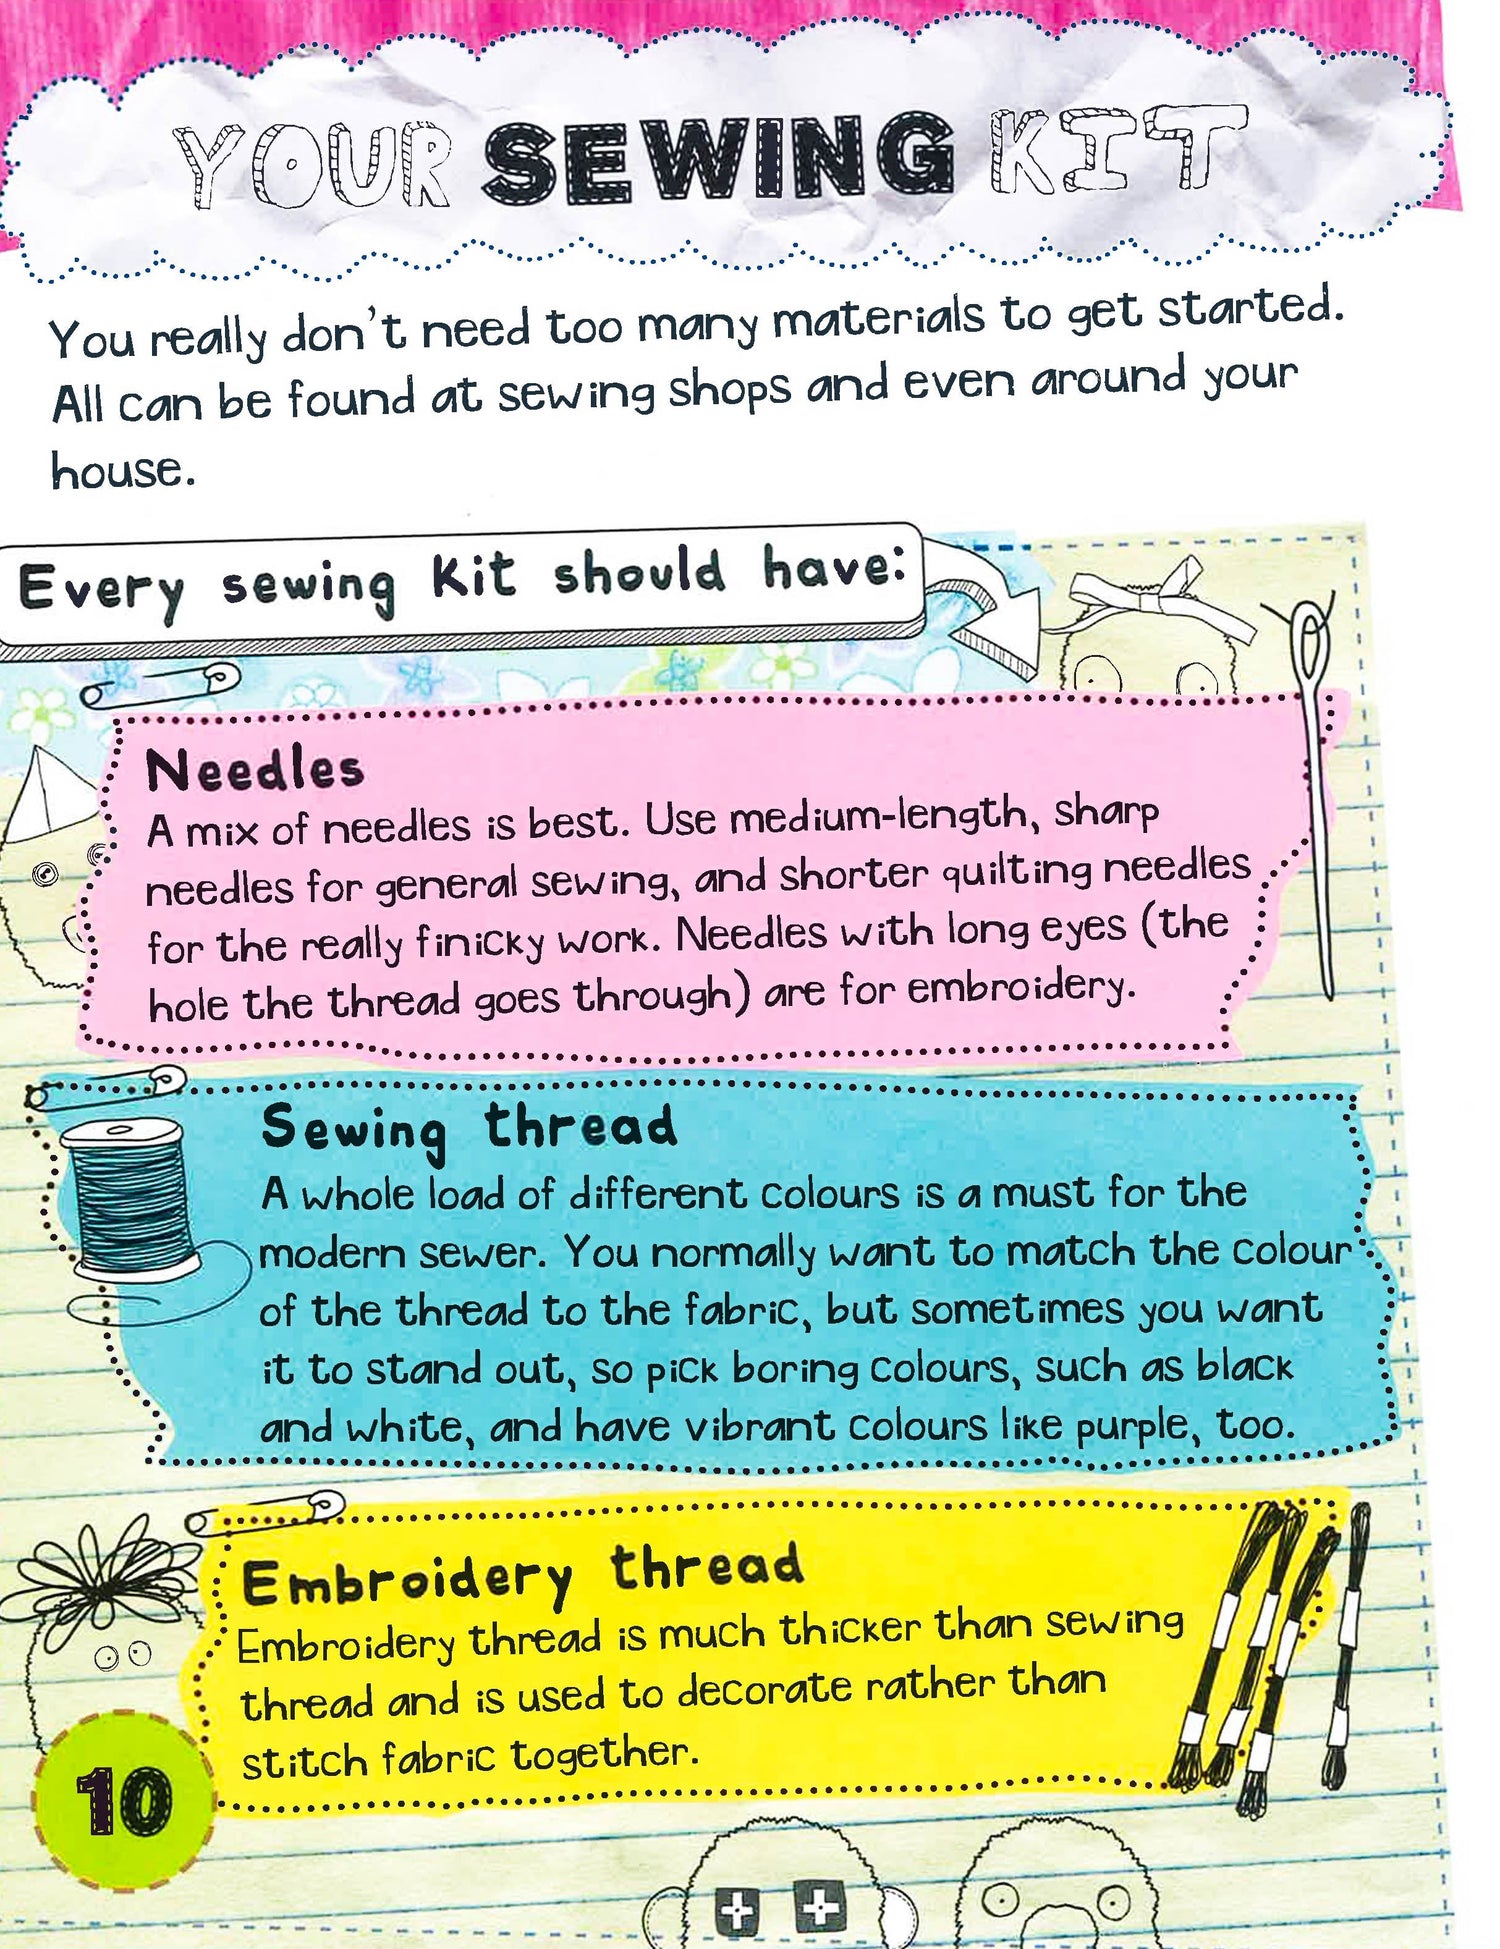 YOUR SEWING KIT
You really don't need too many materials to get started.
All can be found at sewing shops and even around your
house.
Every sewing kit should have:
Needles
A mix of needles is best. Use medium-length, sharp
needles for general sewing, and shorter quilting needles
for the really finicky work. Needles with long eyes (the
hole the thread goes through) are for embroidery.
Sewing thread
A whole load of different colours is a must for the
modern sewer. You normally want to match the colour
of the thread to the fabric, but sometimes you want
it to stand out, so pick boring colours, such as black
and white, and have vibrant colours like purple, too.
Embroidery thread
Embroidery thread is much thicker than sewing
thread and is used to decorate rather than
stitch fabric together.
10